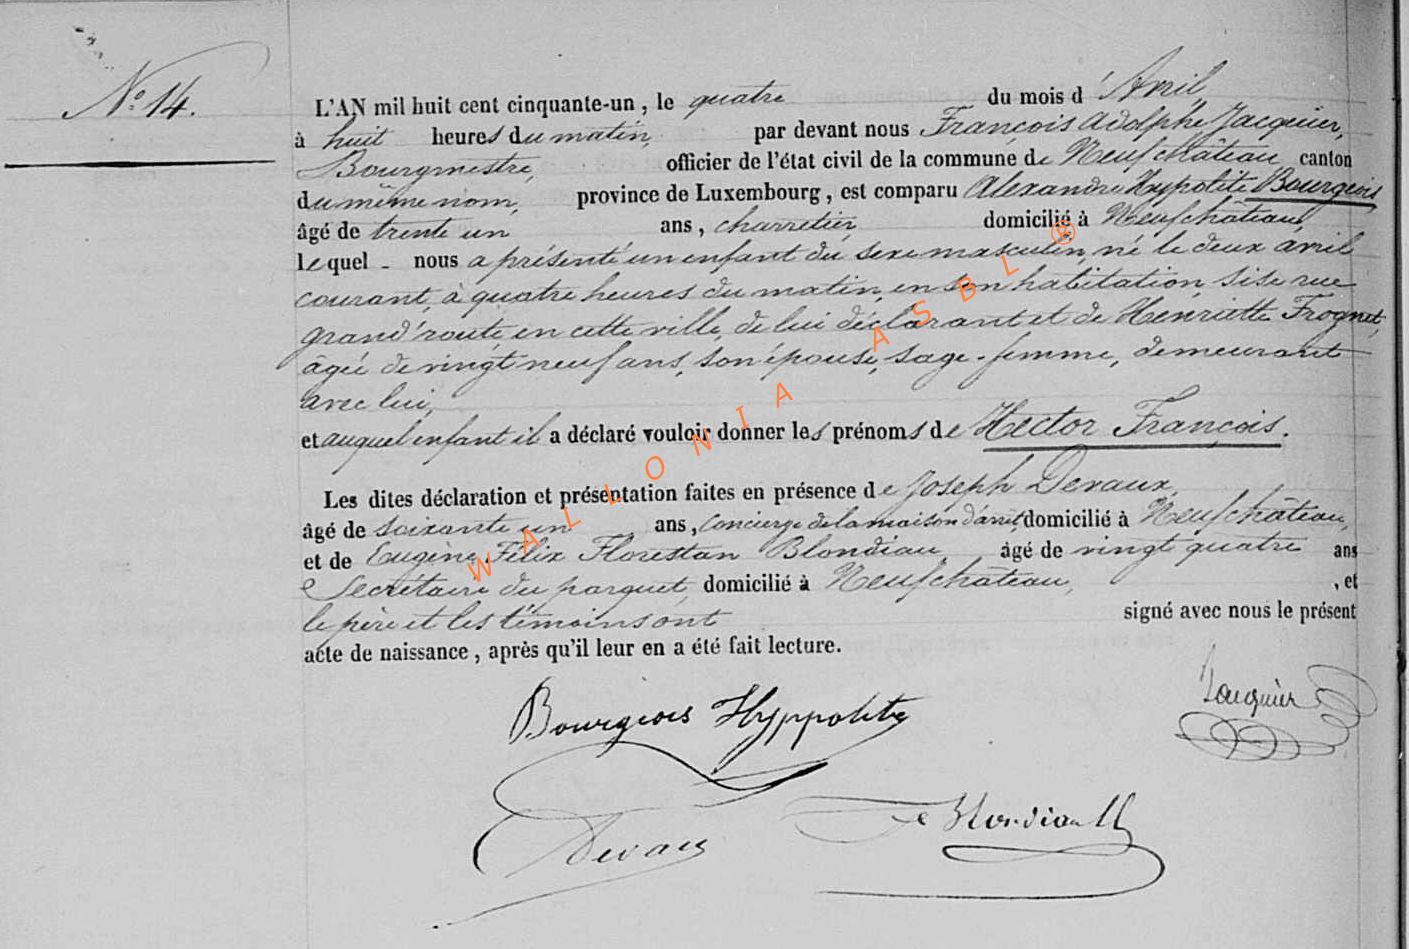 N.° 14.
L'AN mil huit cent cinquante-un, le quatre du mois d'Avril,
à huit heures du matin, par devant nous François Adolphe Jacquier,
Bourgmestre, officier de l'état civil de la commune de Neufchâteau, canton
du même nom, province de Luxembourg, est comparu Alexandre Hyppolite Bourgeois
âgé de trente un ans, charretier, domicilié à Neufchâteau,
lequel - nous a présenté un enfant du sexe masculin, né le deux avril
courant, à quatre heures du matin, en son habitation, sise rue
grand'route, en cette ville, de lui déclarant et de Henriette Frognet,
âgée de vingt neuf ans, son épouse, sage-femme, demeurant
avec lui,
et auquel enfant il a déclaré vouloir donner les prénoms de Hector François.
Les dites déclaration et présentation faites en présence de Joseph Devaux,
âgé de soixante un ans, concierge de la maison d'arrêt, domicilié à Neufchâteau,
et de Eugène Félix Florestan Blondiau, âgé de vingt quatre ans
Secrétaire du parquet, domicilié à Neufchâteau, , et
le père et les témoins ont signé avec nous le présent
acte de naissance, après qu'il leur en a été fait lecture.
Bourgeois Hyppolite
Jacquier
Devaux
WALLONIA ASBL ®